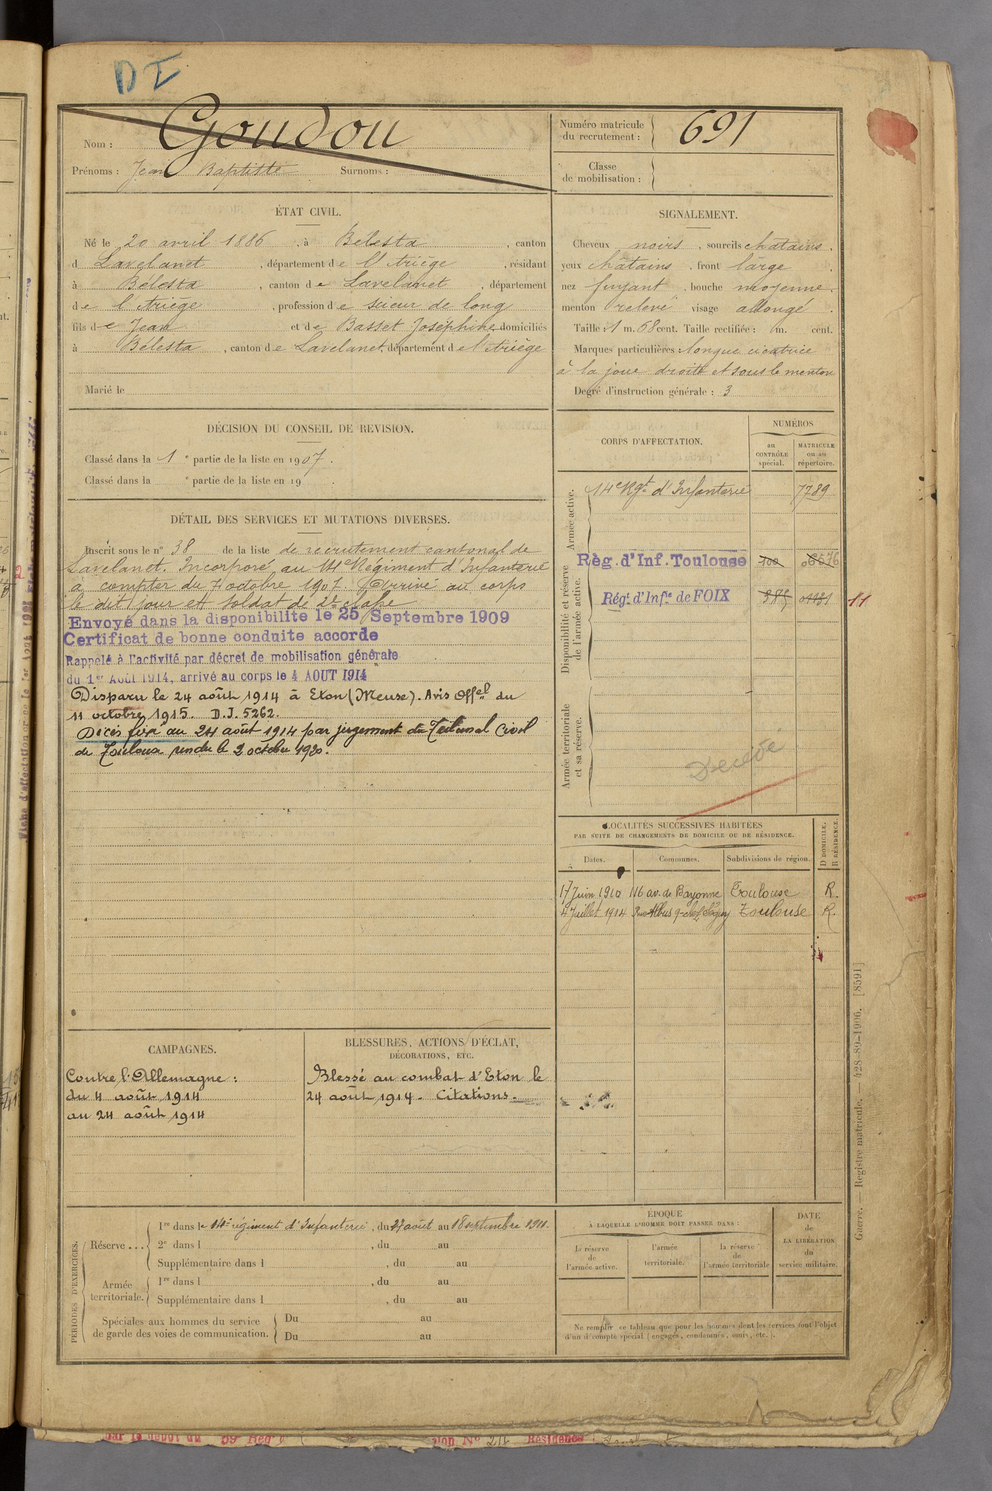 DI
Nom : Goudou
Prénoms : Jean Baptiste Surnoms :
Numéro matricule du recrutement : 691
Classe de mobilisation :
ÉTAT CIVIL.
Né le 20 avril 1886, à Bélesta, canton
d Lavelanet, département de l'Ariège, résidant
à Bélesta, canton de Lavelanet, département
de l'Ariège, profession de scieur de long
fils de Jean et de Basset Joséphine domiciliés
à Bélesta, canton de Lavelanet département de l'Ariège
Marié le
SIGNALEMENT.
Cheveux noirs, sourcils chatains.
yeux chatains, front large
nez fuyant, bouche moyenne.
menton relevé visage allongé.
Taille : 1 m. 68 cent. Taille rectifiée : m. cent.
Marques particulières : longue cicatrice
à la joue droite et sous le menton
Degré d'instruction générale : 3
DÉCISION DU CONSEIL DE REVISION.
Classé dans la 1e partie de la liste en 1907.
Classé dans la e partie de la liste en 19
DÉTAIL DES SERVICES ET MUTATIONS DIVERSES.
Inscrit sous le n° 38 de la liste de recrutement cantonal de
Lavelanet. Incorporé au 14e Régiment d'Infanterie
à compter du 7 octobre 1907. Arrivé au corps
le dit jour et soldat de 2e classe
Envoyé dans la disponibilité le 25 Septembre 1909
Certificat de bonne conduite accordé
Rappelé à l'activité par décret de mobilisation générale
du 1er AOÛT 1914, arrivé au corps le 4 AOUT 1914
Disparu le 24 août 1914 à Eton (Meuse). Avis Offel du
11 octobre 1915. D.J. 5262.
Décès fixé au 24 août 1914 par jugement du Tribunal Civil
de Toulouse rendu le 2 octobre 1920.
CORPS D'AFFECTATION.
NUMÉROS
au CONTRÔLE spécial.
MATRICULE OU AU répertoire.
Armée active.
14e Rgt d'Infanterie 7789
Disponibilité et réserve de l'armée active.
Règ. d'Inf. Toulouse
Règt d'Infie de FOIX
11
Armée territoriale et sa réserve.
Décédé
LOCALITÉS SUCCESSIVES HABITÉES
PAR SUITE DE CHANGEMENTS DE DOMICILE OU DE RÉSIDENCE.
Dates. Communes. Subdivisions de région. D DOMICILE. R RÉSIDENCE.
17 Juin 1910 116 av. de Bayonne Toulouse R.
4 Juillet 1914 Toulouse R.
CAMPAGNES.
Contre l'Allemagne :
du 4 août 1914
au 24 août 1914
BLESSURES, ACTIONS D'ÉCLAT,
DÉCORATIONS, ETC.
Blessé au combat d'Eton le
24 août 1914. Citations.
PÉRIODES D'EXERCICES.
Réserve ...
1re dans le 14e régiment d'Infanterie, du 27 août au 18 septembre 1911.
2e dans l , du au
Supplémentaire dans l , du au
Armée territoriale.
1re dans l , du au
Supplémentaire dans l , du au
Spéciales aux hommes du service
de garde des voies de communication.
Du au
Du au
ÉPOQUE
À LAQUELLE L'HOMME DOIT PASSER DANS :
la réserve de l'armée active.
l'armée territoriale.
la réserve de l'armée territoriale
DATE de LA LIBÉRATION du service militaire.
Ne remplir ce tableau que pour les hommes dont les services font l'objet
d'un décompte spécial (engagés, condamnés, omis, etc.).
Guerre. Registre matricule. 428-89-1906. [8591]